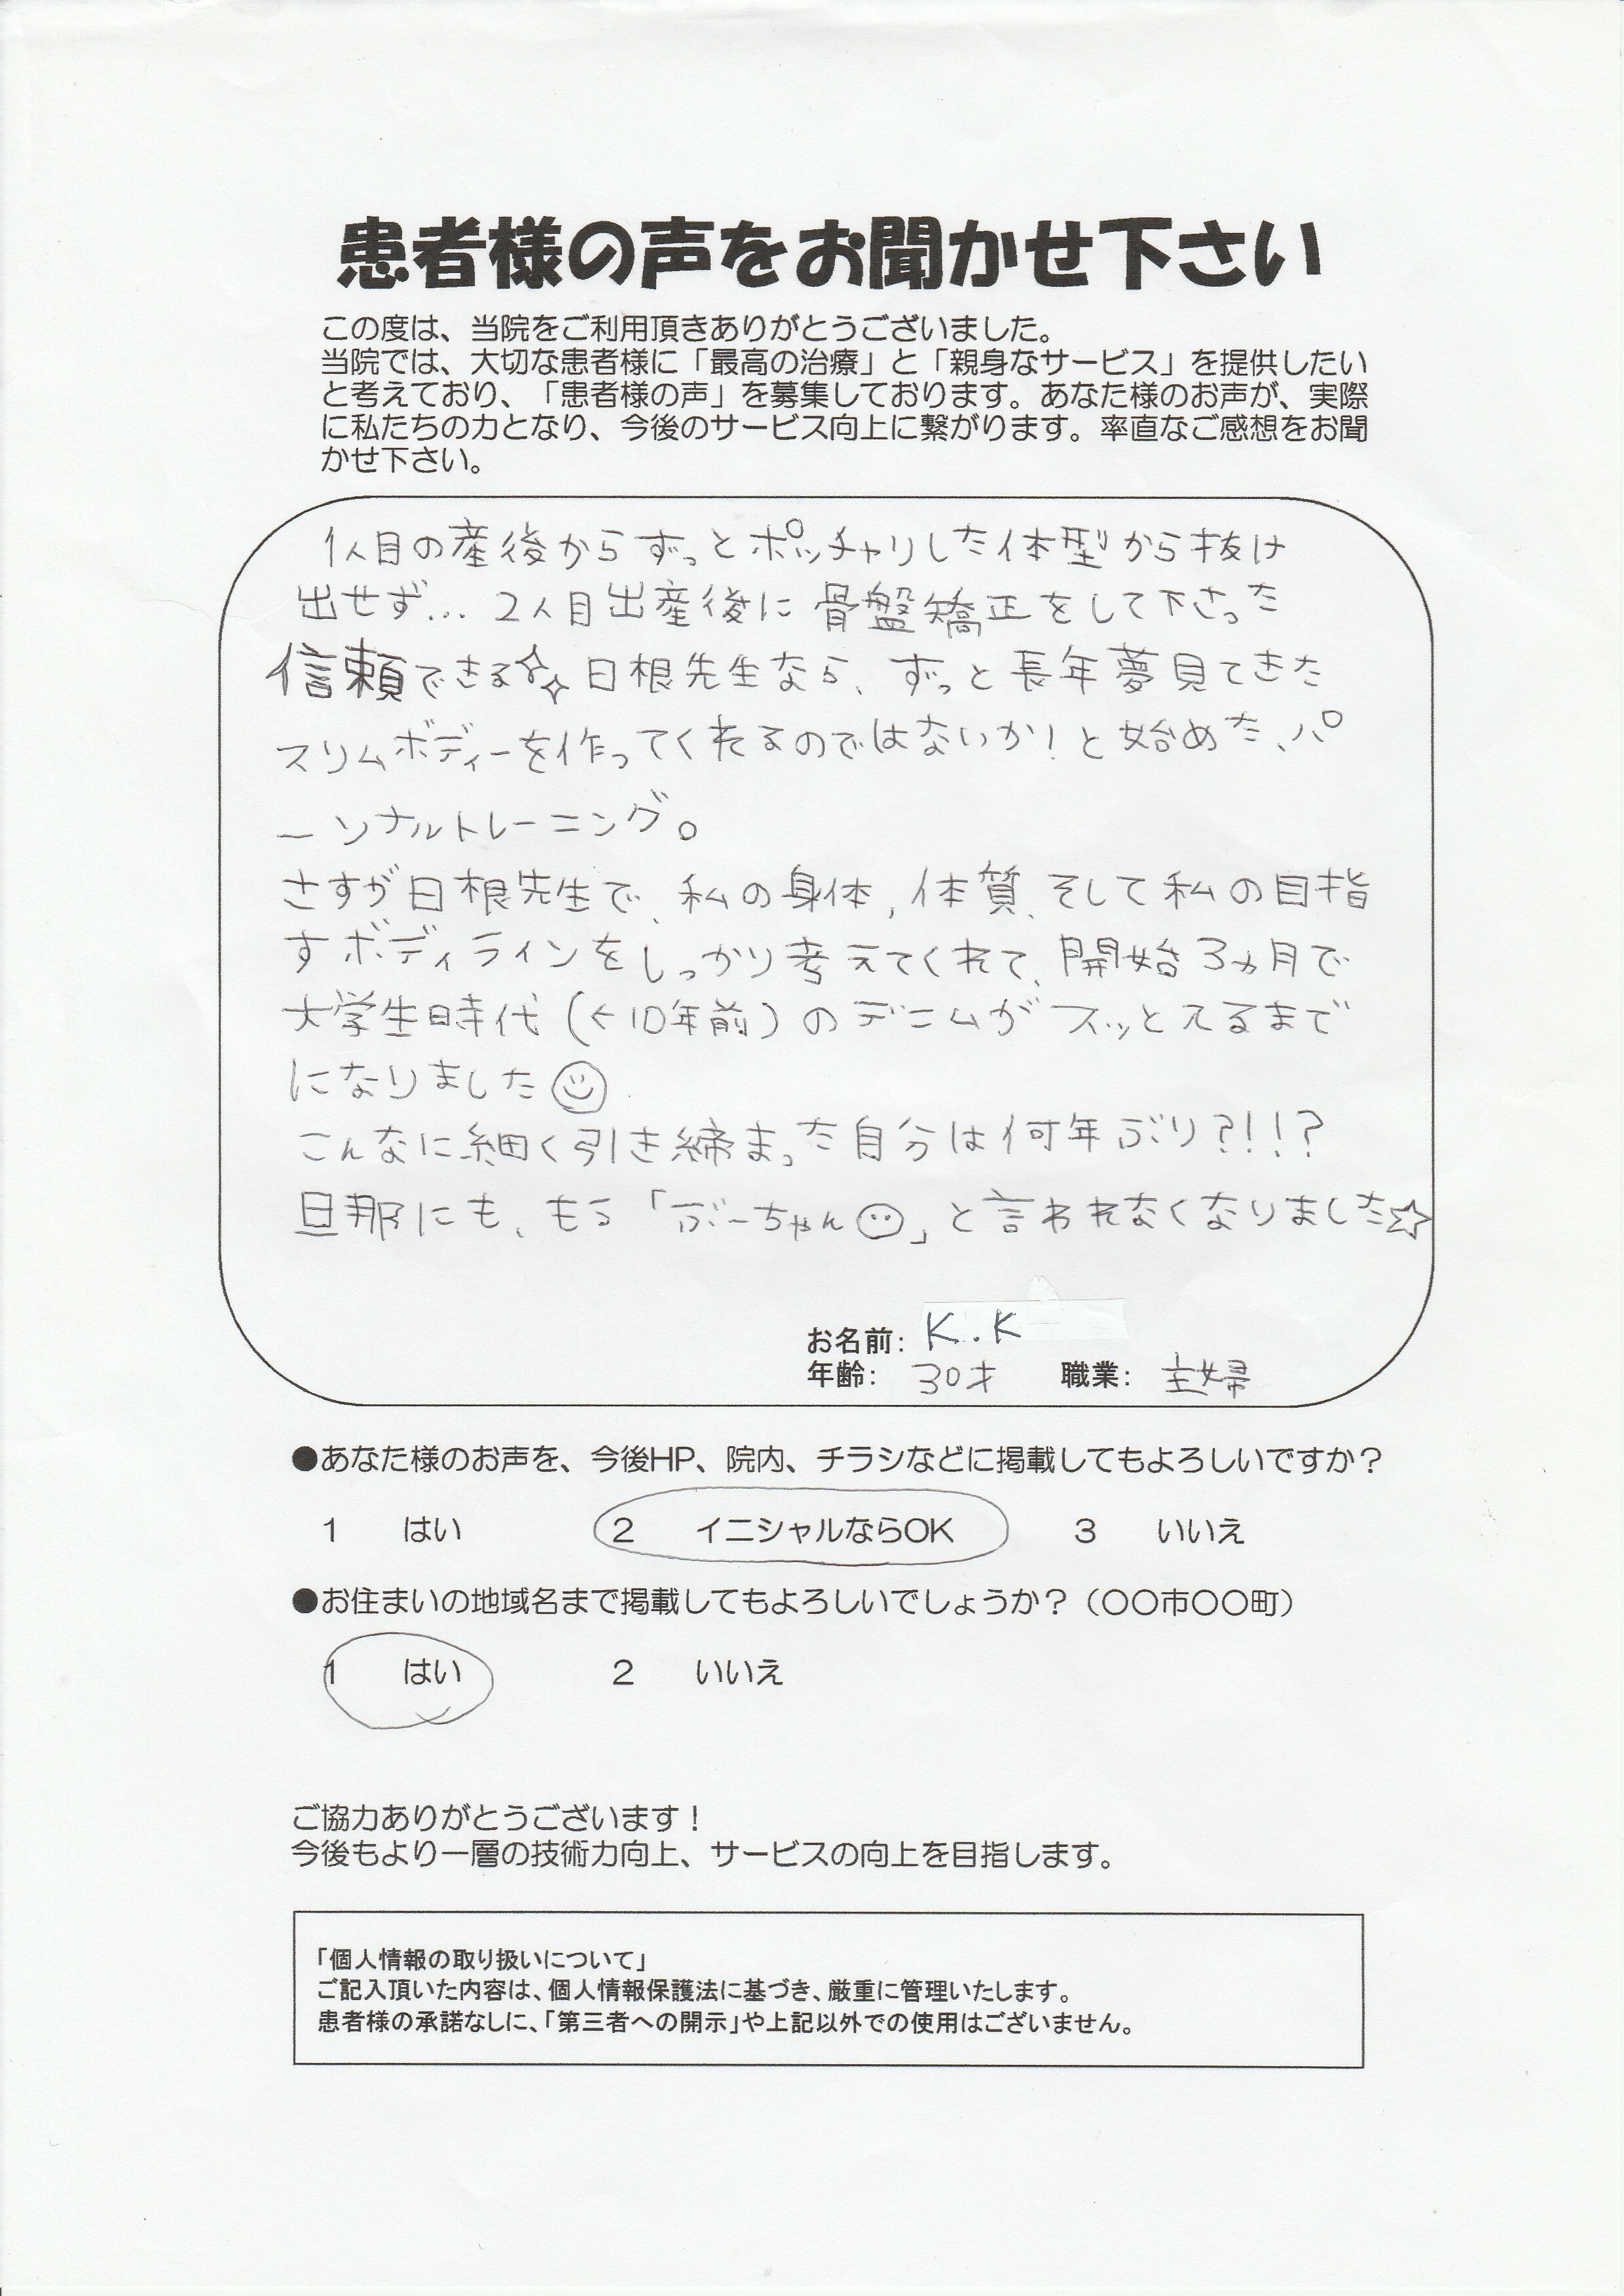 患者様の声をお聞かせ下さい
この度は、当院をご利用頂きありがとうございました。
当院では、大切な患者様に「最高の治療」と「親身なサービス」を提供したい
と考えており、「患者様の声」を募集しております。あなた様のお声が、実際
に私たちの力となり、今後のサービス向上に繋がります。率直なご感想をお聞
かせ下さい。
1人目の産後からずっとポッチャリした体型から抜け
出せず… 2人目出産後に骨盤矯正をして下さった
信頼できる☆☆日根先生なら、ずっと長年夢見てきた
スリムボディーを作ってくれるのではないか!と始めた、パ
ーソナルトレーニング。
さすが日根先生で、私の身体,体質、そして私の目指
すボディラインをしっかり考えてくれて、開始3ヵ月で
大学生時代(←10年前)のデニムがスッとえるまで
になりました☺
こんなに細く引き締まった自分は何年ぶり?!!?
旦那にも、もう「ぶーちゃん☺」と言われなくなりました☆
お名前: K.K
年齢: 30才 職業: 主婦
●あなた様のお声を、今後HP、院内、チラシなどに掲載してもよろしいですか?
1 はい 2 イニシャルならOK 3 いいえ
●お住まいの地域名まで掲載してもよろしいでしょうか?(〇〇市〇〇町)
1 はい 2 いいえ
ご協力ありがとうございます!
今後もより一層の技術力向上、サービスの向上を目指します。
「個人情報の取り扱いについて」
ご記入頂いた内容は、個人情報保護法に基づき、厳重に管理いたします。
患者様の承諾なしに、「第三者への開示」や上記以外での使用はございません。